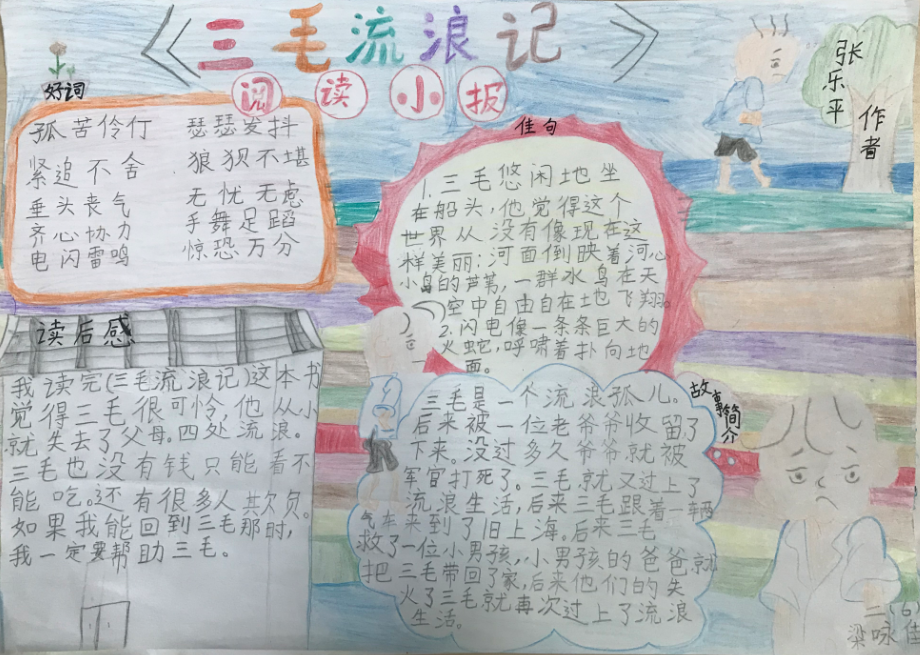 《三毛流浪记》
阅读小报
张乐平
作者
好词
孤苦伶仃 瑟瑟发抖
紧追不舍 狼狈不堪
垂头丧气 无忧无虑
齐心协力 手舞足蹈
电闪雷鸣 惊恐万分
佳句
1.三毛悠闲地坐
在船头,他觉得这个
世界从没有像现在这
样美丽:河面倒映着河心
小岛的芦苇,一群水鸟在天
空中自由自在地飞翔。
2.闪电像一条条巨大的
火蛇,呼啸着扑向地
面。
读后感
我读完(三毛流浪记)这本书
觉得三毛很可怜,他从小
就失去了父母。四处流浪。
三毛也没有钱只能看不
能吃。还有很多人欺负。
如果我能回到三毛那时,
我一定要帮助三毛。
故事简介
三毛是一个流浪孤儿。
后来被一位老爷爷收留了
下来。没过多久爷爷就被
军官打死了。三毛就又过上了
流浪生活,后来三毛跟着一辆
汽车来到了旧上海。后来三毛
救了一位小男孩,小男孩的爸爸就
把三毛带回了家,后来他们的失
火了三毛就再次过上了流浪
生活。
二(6)
梁咏佳